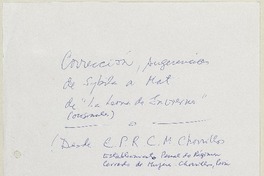 Corrección, sugerencias
de Sybila a Mat
de "La Leona de Invierno"
(originales)
o
! Desde E.P.R.C.M Chorrillos
Establecimiento Penal de Régimen
Cerrado de Mujeres - Chorrillos, Lima